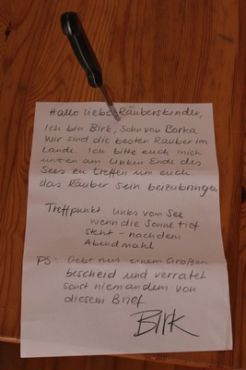 Hallo liebe Räuberskinder,
Ich bin Birk, Sohn von Borka
Wir sind die besten Räuber im
Lande. Ich bitte euch mich
unten am linken Ende des
Sees zu treffen um euch
das Räuber sein beizubringen
Treffpunkt links vom See
wenn die Sonne tief
steht - nachdem
Abendmahl
PS: Gebt nur einem Großen
bescheid und verratet
sonst niemandem von
diesem Brief
BIRK